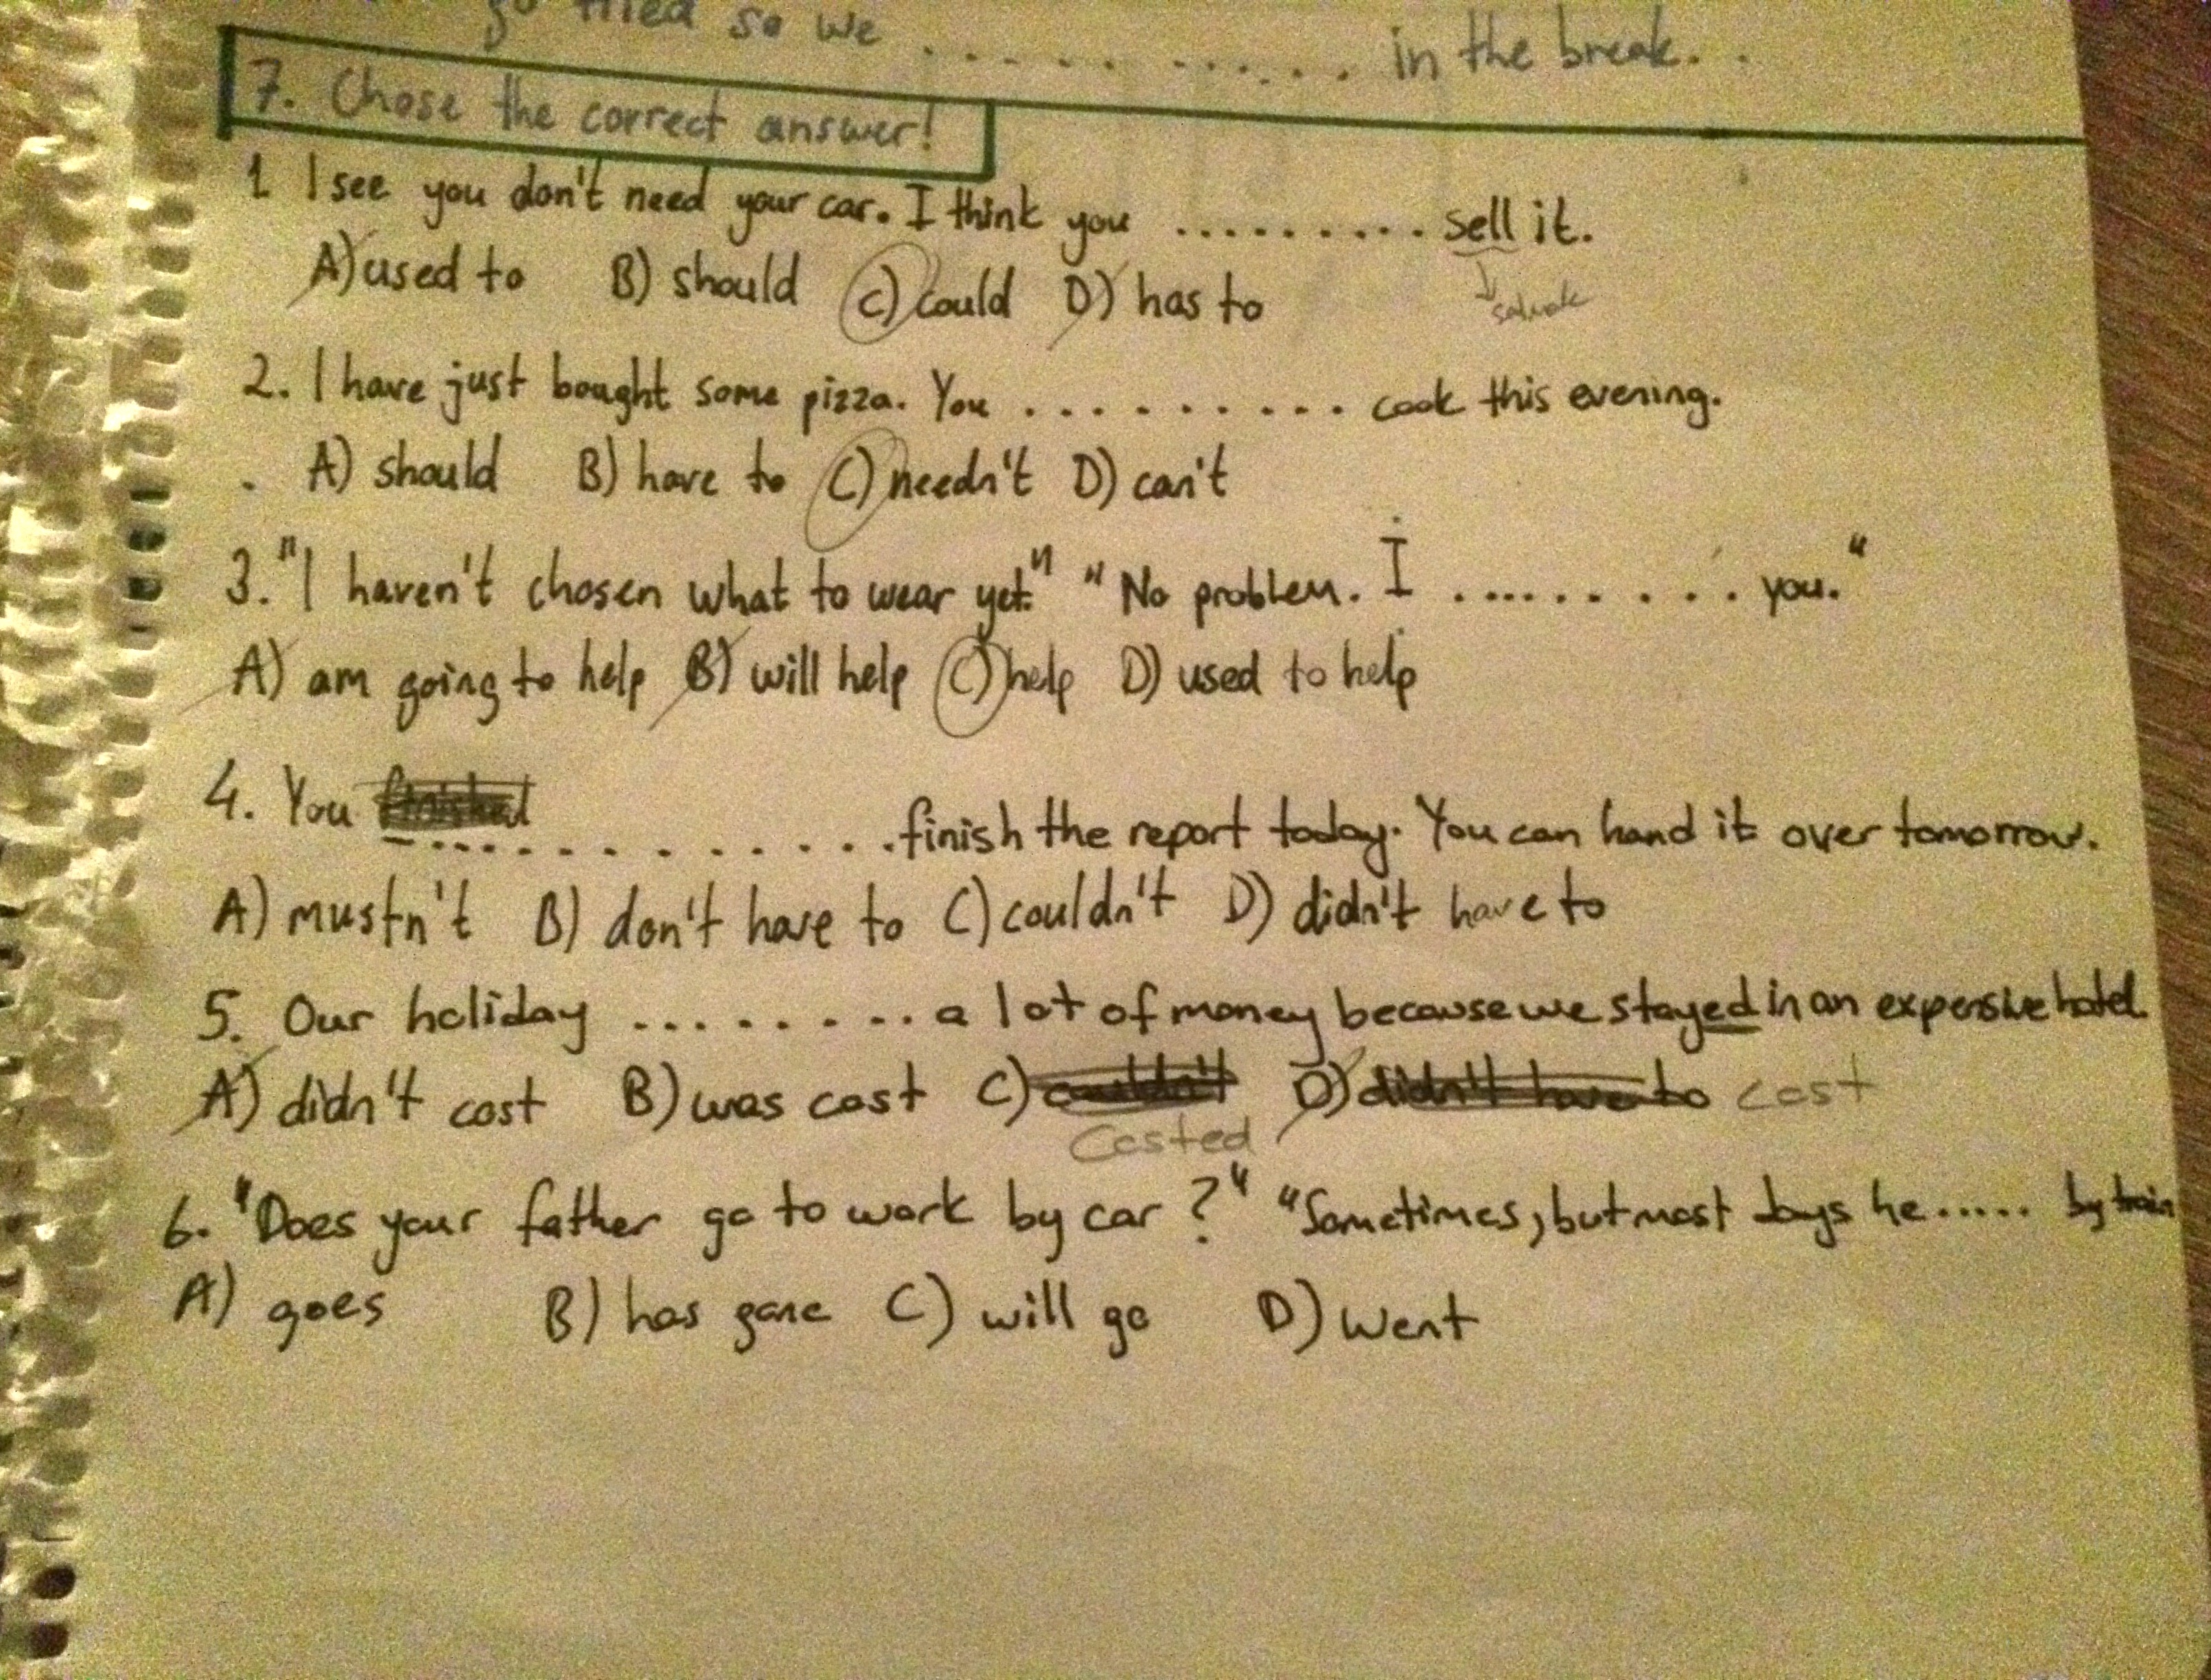 so we .......... in the break.
7. Chose the correct answer!
1 I see you don't need your car. I think you .......... sell it.
A) used to B) should C) could D) has to
2. I have just bought some pizza. You .......... cook this evening.
A) should B) have to C) needn't D) can't
3. "I haven't chosen what to wear yet." "No problem. I .......... you."
A) am going to help B) will help C) help D) used to help
4. You .............. finish the report today. You can hand it over tomorrow.
A) mustn't B) don't have to C) couldn't D) didn't have to
5. Our holiday ......... a lot of money because we stayed in an expensive hotel.
A) didn't cost B) was cost C) couldn't D) didn't have to cost
costed
6. "Does your father go to work by car?" "Sometimes, but most days he ..... by train
A) goes B) has gone C) will go D) went